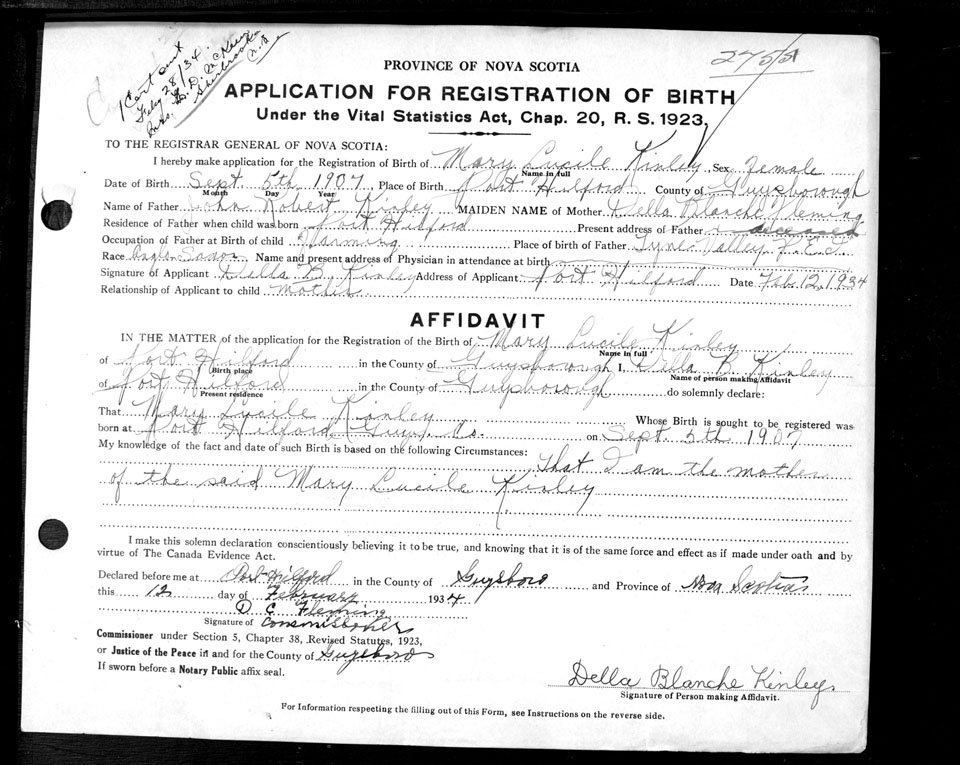 Cert out
Feby 28/34
Mrs. D. McKeen
Sherbrooke
N.S.
2755
PROVINCE OF NOVA SCOTIA
APPLICATION FOR REGISTRATION OF BIRTH
Under the Vital Statistics Act, Chap. 20, R. S. 1923.
TO THE REGISTRAR GENERAL OF NOVA SCOTIA:
I hereby make application for the Registration of Birth of Mary Lucile Kinley, Sex Female
Name in full
Date of Birth Sept. 5th 1907, Place of Birth Port Hilford County of Guysborough
Month Day Year
Name of Father John Robert Kinley MAIDEN NAME of Mother Della Blanche Fleming
Residence of Father when child was born Port Hilford Present address of Father deceased
Occupation of Father at Birth of child Farming Place of birth of Father Tyne Valley P.E.I.
Race Anglo-Saxon Name and present address of Physician in attendance at birth
Signature of Applicant Della B. Kinley Address of Applicant Port Hilford Date Feb. 12, 1934
Relationship of Applicant to child Mother
AFFIDAVIT
IN THE MATTER of the application for the Registration of the Birth of Mary Lucile Kinley
Name in full
of Port Hilford in the County of Guysborough I, Della B. Kinley
Birth place Name of person making Affidavit
of Port Hilford in the County of Guysborough do solemnly declare:
Present residence
That Mary Lucile Kinley Whose Birth is sought to be registered was
born at Port Hilford, Guys. Co. on Sept. 5th. 1907
My knowledge of the fact and date of such Birth is based on the following Circumstances: That I am the mother
of the said Mary Lucile Kinley
I make this solemn declaration conscientiously believing it to be true, and knowing that it is of the same force and effect as if made under oath and by
virtue of The Canada Evidence Act.
Declared before me at Port Hilford in the County of Guysboro and Province of Nova Scotia
this 12 day of February 1934
D C Fleming
Signature of Commissioner
Commissioner under Section 5, Chapter 38, Revised Statutes, 1923,
or Justice of the Peace in and for the County of Guysboro
If sworn before a Notary Public affix seal.
Della Blanche Kinley.
Signature of Person making Affidavit.
For Information respecting the filling out of this Form, see Instructions on the reverse side.